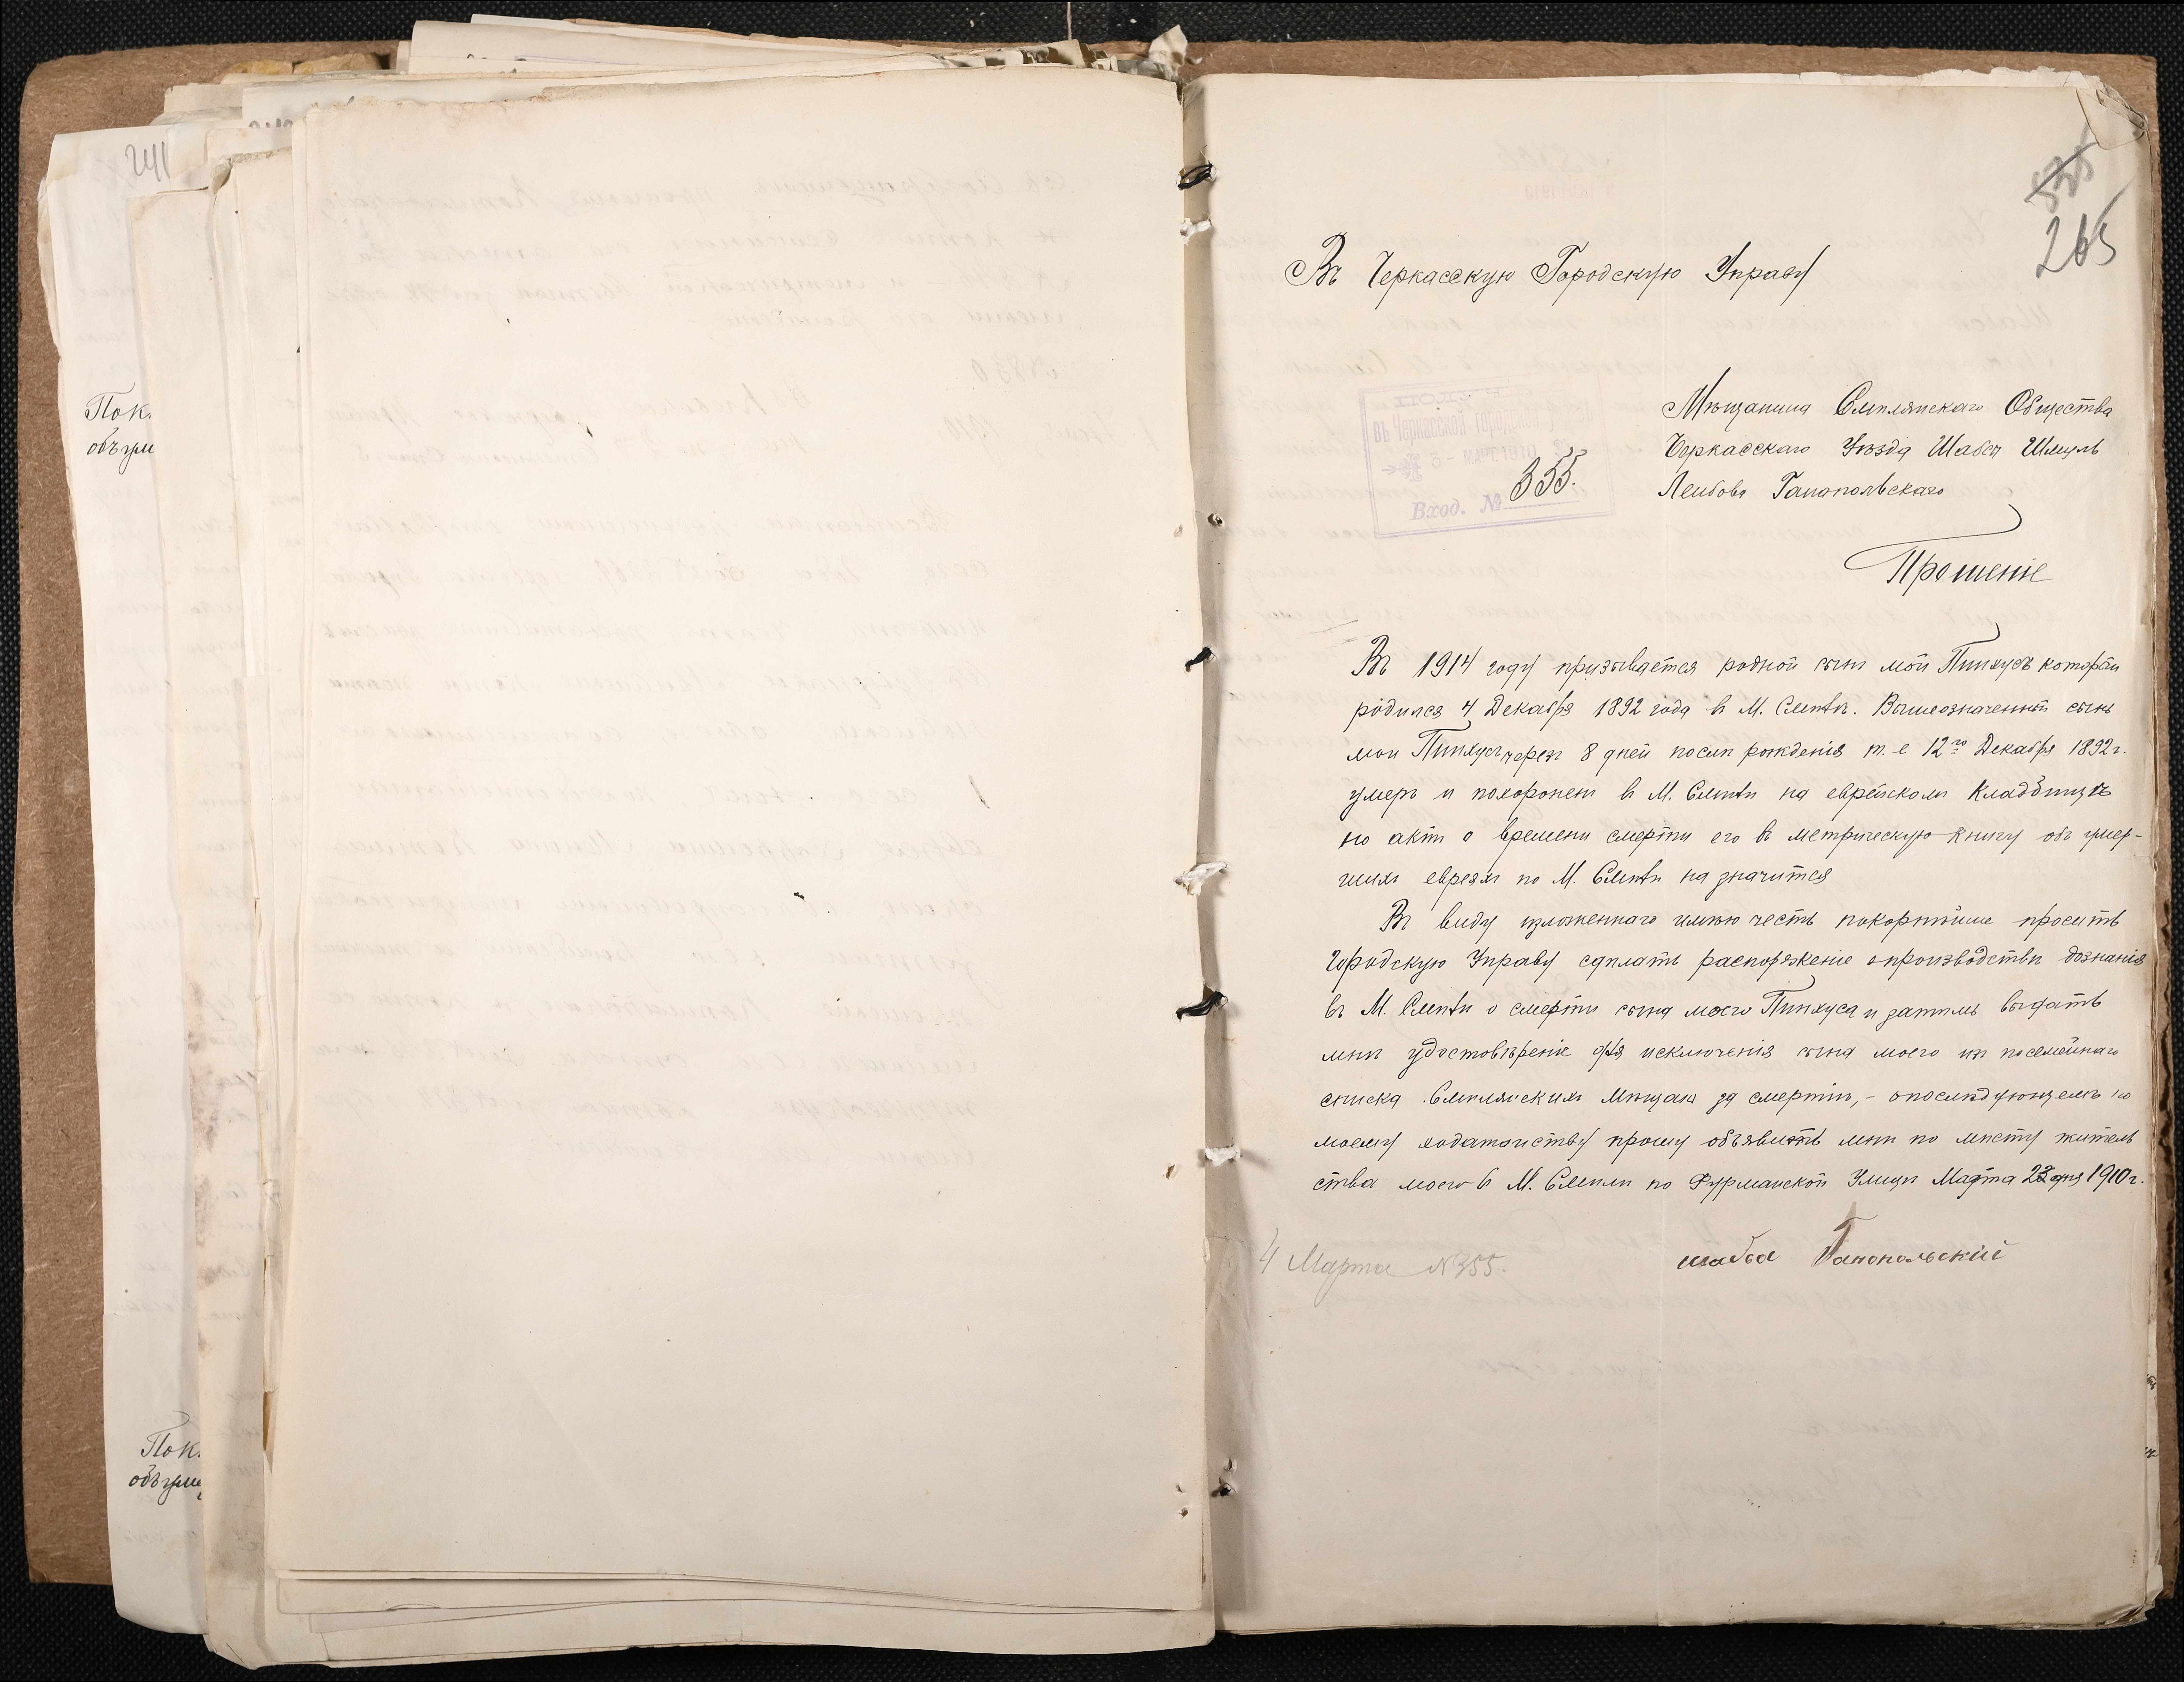 241
Пок.
объ
Пок.
объ
535
265
Въ Черкасскую Городскую Управу
въ Черкасской Городской
3 - МАРТ 1910
Вход. № 355.
Мѣщанина Смѣлянскаго Общества
Черкасскаго Уѣзда Шабса Шмуль
Лейбова Ганопольскаго
Прошеніе
Въ 1914 году призывается родной сынъ мой Пинхусъ который
родился 4 Декабря 1892 года в М. Смѣлѣ. Вышеозначенный сынъ
мои Пинхусъ через 8 дней послѣ рожденія т. е 12го Декабря 1892 г.
умеръ и похоронен в М. Смѣлѣ на еврейском кладбищѣ
но актъ о времени смерти его въ метрическую книгу объ умер-
ших евреях по М. Смѣлѣ на значится
Въ виду изложеннаго имѣю честь покорнѣйше просить
Городскую Управу сдѣлать распоряженіе о производствѣ дознанія
въ М. Смѣлѣ о смерти сына моего Пинхуса и затѣмъ выдать
мнѣ удостовѣреніе для исключенія сына моего из посемейнаго
списка Смѣлянских Мѣщанъ за смертію, - о послѣдующемъ по
моему ходатайству прошу объявить мнѣ по мѣсту житель
ства моего в М. Смѣлѣ по Фурманской Улицѣ Марта дня 1910 г.
шабса Ганопольский
4 Марта № 355.